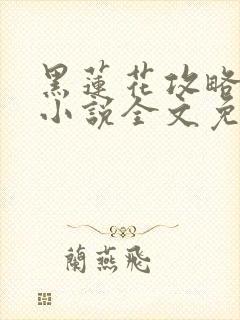 黑蓮花攻略
小說全文免
蘭燕飛